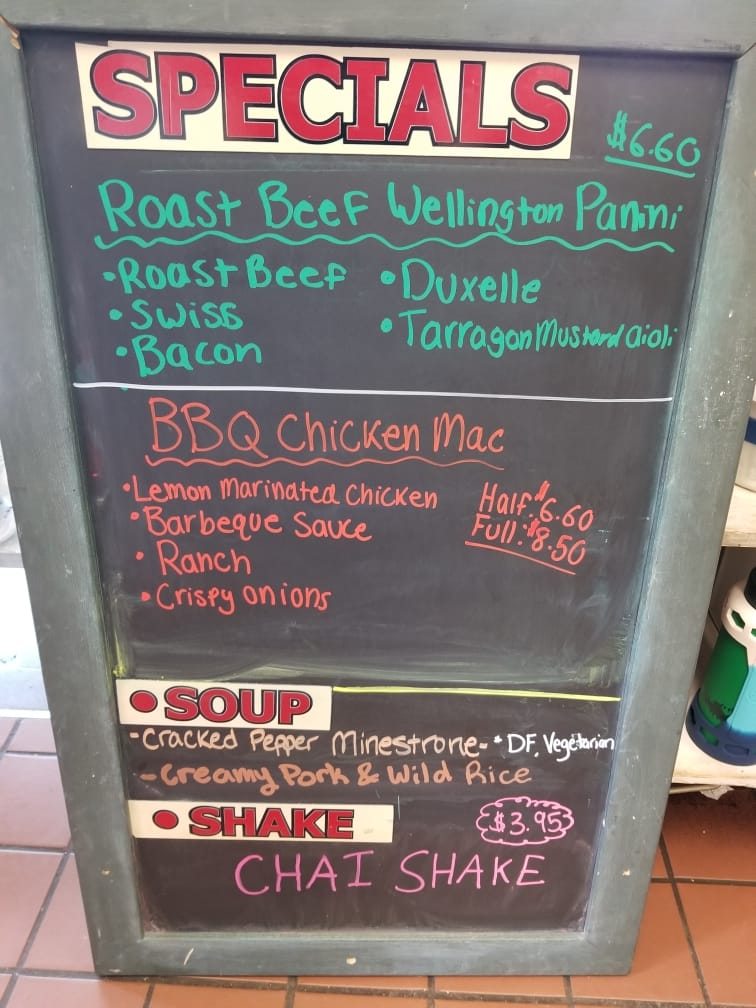 SPECIALS
$6.60
Roast Beef Wellington Panini
• Roast Beef • Duxelle
• Swiss • Tarragon Mustard aioli
• Bacon
BBQ Chicken Mac
• Lemon Marinated Chicken Half: $6.60
• Barbeque Sauce Full: $8.50
• Ranch
• Crispy onions
• SOUP
- Cracked Pepper Minestrone - * DF, Vegetarian
- Creamy Pork & Wild Rice
• SHAKE $3.95
CHAI SHAKE